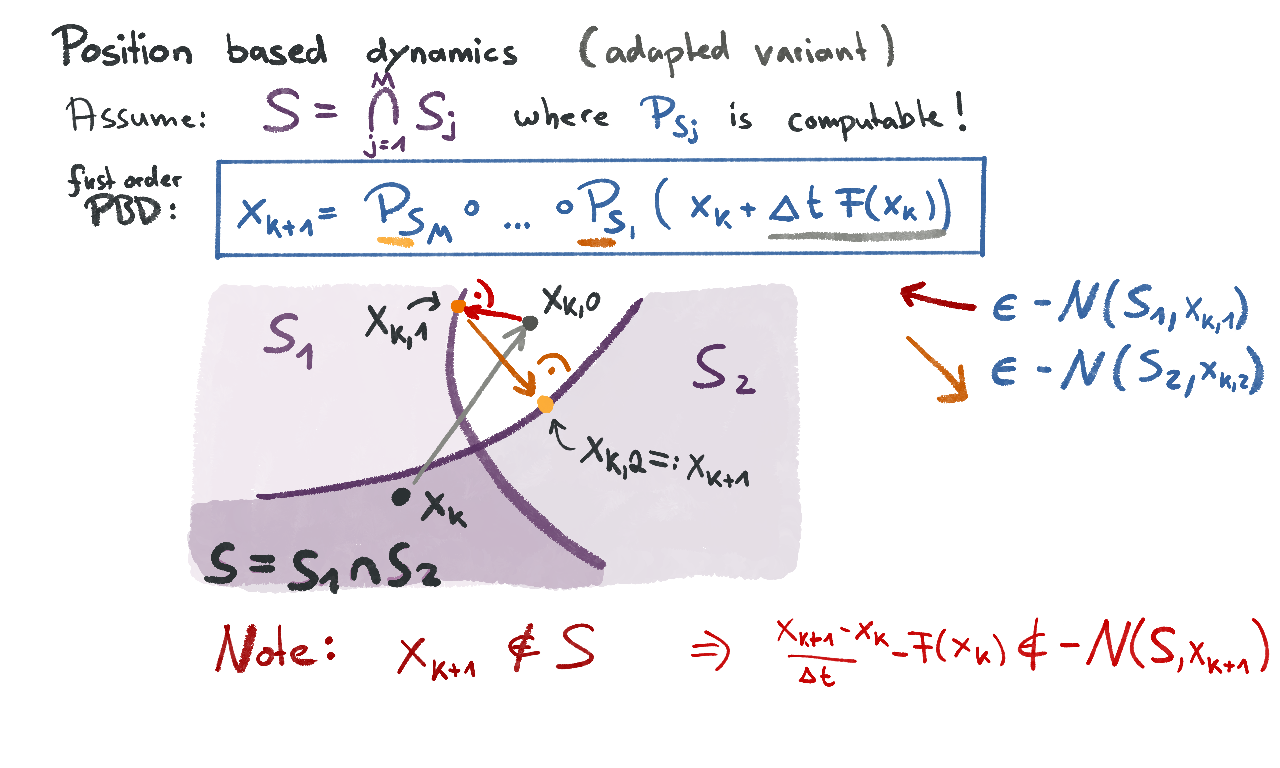 Position based dynamics (adapted variant)
Assume: S = ⋂_{j=1}^{M} S_j where P_{S_j} is computable!
first order
PBD: x_{k+1} = P_{S_M} ∘ ... ∘ P_{S_1} ( x_k + Δt F(x_k))
x_{k,1} x_{k,0}
S_1 S_2
∈ -N(S_1, x_{k,1})
∈ -N(S_2, x_{k,2})
x_{k,2} =: x_{k+1}
x_k
S = S_1 ∩ S_2
Note: x_{k+1} ∉ S ⇒ \frac{x_{k+1} - x_k}{Δt} - F(x_k) ∉ -N(S, x_{k+1})